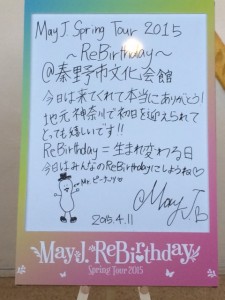 May J. Spring Tour 2015
～ReBirthday～
@秦野市文化会館
今日は来てくれて本当にありがとう!
地元神奈川で初日を迎えられて
とっても嬉しいです!!
ReBirthday=生まれ変わる日
今日はみんなのReBirthdayにしようね♡
Mr.ピーナッツ
2015.4.11
May J.
May J. ReBirthday
Spring Tour 2015